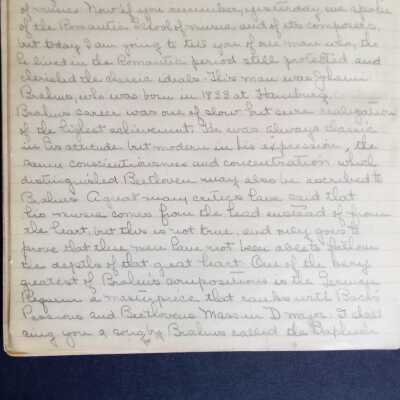 of music. Now if you remember, yesterday we spoke
of the Romantic School of music and of its composers,
but today I am going to tell you of one man who, tho
he lived in the Romantic period still protected and
cherished the classic ideals. This man was Johann
Brahms, who was born in 1833 at Hamburg.
Brahms career was one of slow but sure realization
of the highest achievement. He was always classic
in his attitude but modern in his expression, the
same conscientiousness and concentration which
distinguished Beethoven may also be ascribed to
Brahms. A great many critics have said that
his music comes from the head instead of from
the heart, but this is not true, and only goes to
prove that these men have not been able to follow
the depths of that great heart. One of the very
greatest of Brahm's compositions is the German
Requiem a masterpiece that ranks with Bach's
Passions and Beethovens Mass in D major. I shall
sing you a song by Brahms called the